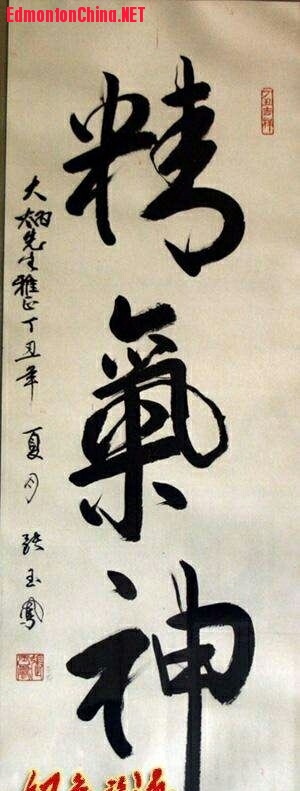 EdmontonChina.NET
精氣神
大炳先生雅正丁丑年 夏月 张玉鳳